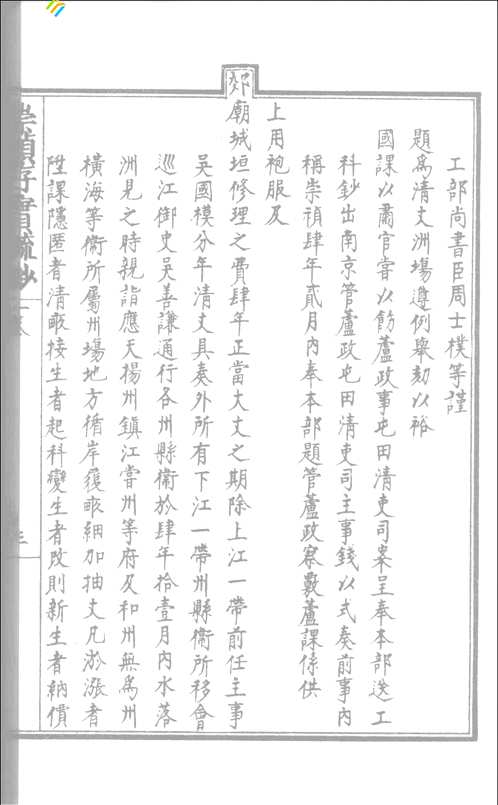 工部尚書臣周士樸等謹
題為清丈洲場遵例舉劾以裕
國課以肅官常以飭蘆政事屯田清吏司案呈奉本部送工
科鈔出南京管蘆政屯田清吏司主事錢以式奏前事內
稱崇禎肆年貳月內奉本部題管蘆政察覈蘆課係供
上用袍服及
郊廟城垣修理之費肆年正當大丈之期除上江一帶前任主事
吳國模分年清丈具奏外所有下江一帶州縣衛所移會
巡江御史吳善謙通行各州縣衛於肆年拾壹月內水落
洲見之時親詣應天揚州鎮江常州等府及和州無為州
橫海等衛所屬州場地方循岸履畝細加抽丈凡淤漲者
陞課隱匿者清畝接生者起科變生者改則新生者納價
崇禎存實疏鈔